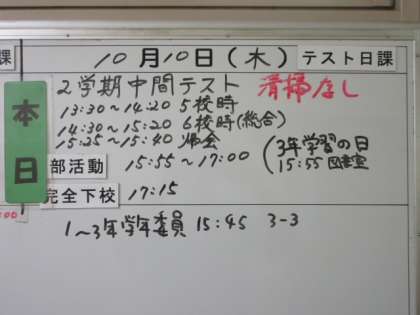 課 10月10日(木) テスト日課
本日
2学期中間テスト 清掃なし
13:30~14:20 5校時
14:30~15:20 6校時(総合)
15:25~15:40 帰会
(3年学習の日
15:55 図書室
部活動 15:55~17:00
完全下校 17:15
:00
1~3年学年委員 15:45 3-3